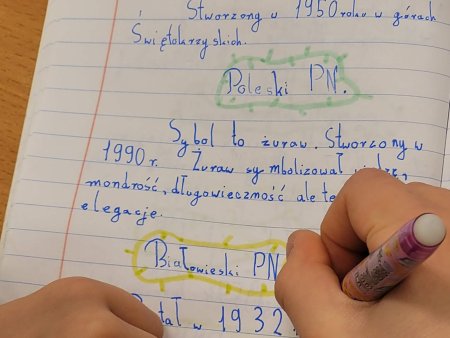 Stworzony w 1950 roku w górach
Świętokrzyskich.
Poleski PN.
Sybol to żuraw. Stworzony w
1990 r. Żuraw symbolizował
mondrość, długowieczność ale
elegację.
Białowieski PN
w 1932